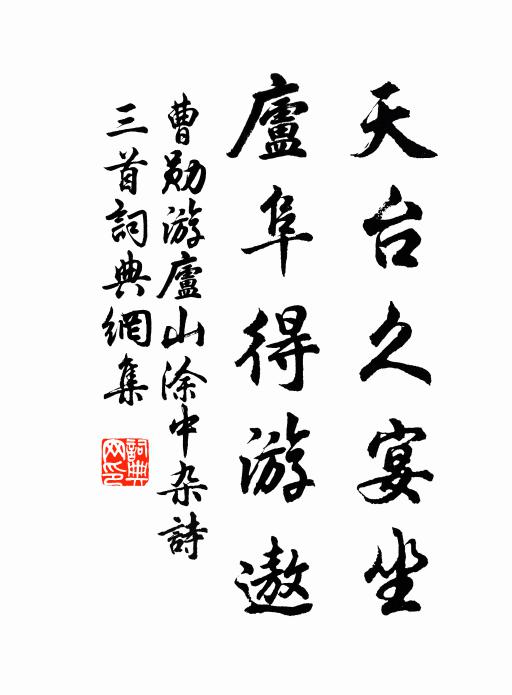 天台久宴坐
廬阜得游遨
曹勛游廬山涂中杂詩
三首詞典網集
詞典網印